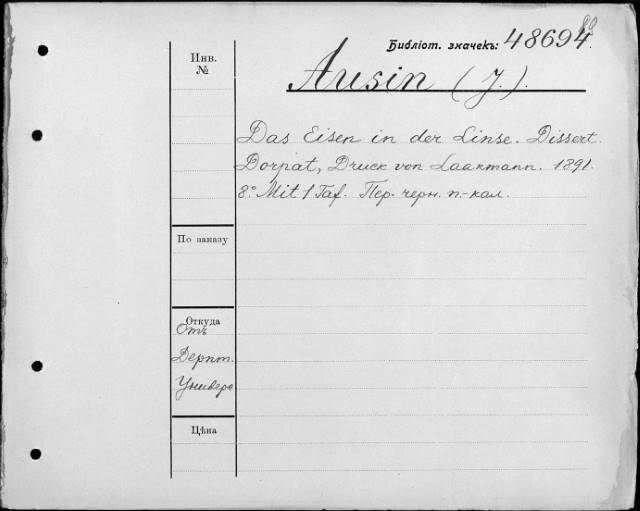 Библіот. значекъ: 48694.
Инв.
№
Ausin (J.).
Das Eisen in der Linse. Dissert.
Dorpat, Druck von Laakmann. 1891.
8.° Mit 1 Taf. Пер. черн. п.-кал.
По заказу
Откуда
Отъ
Дерпт.
Универс
Цѣна